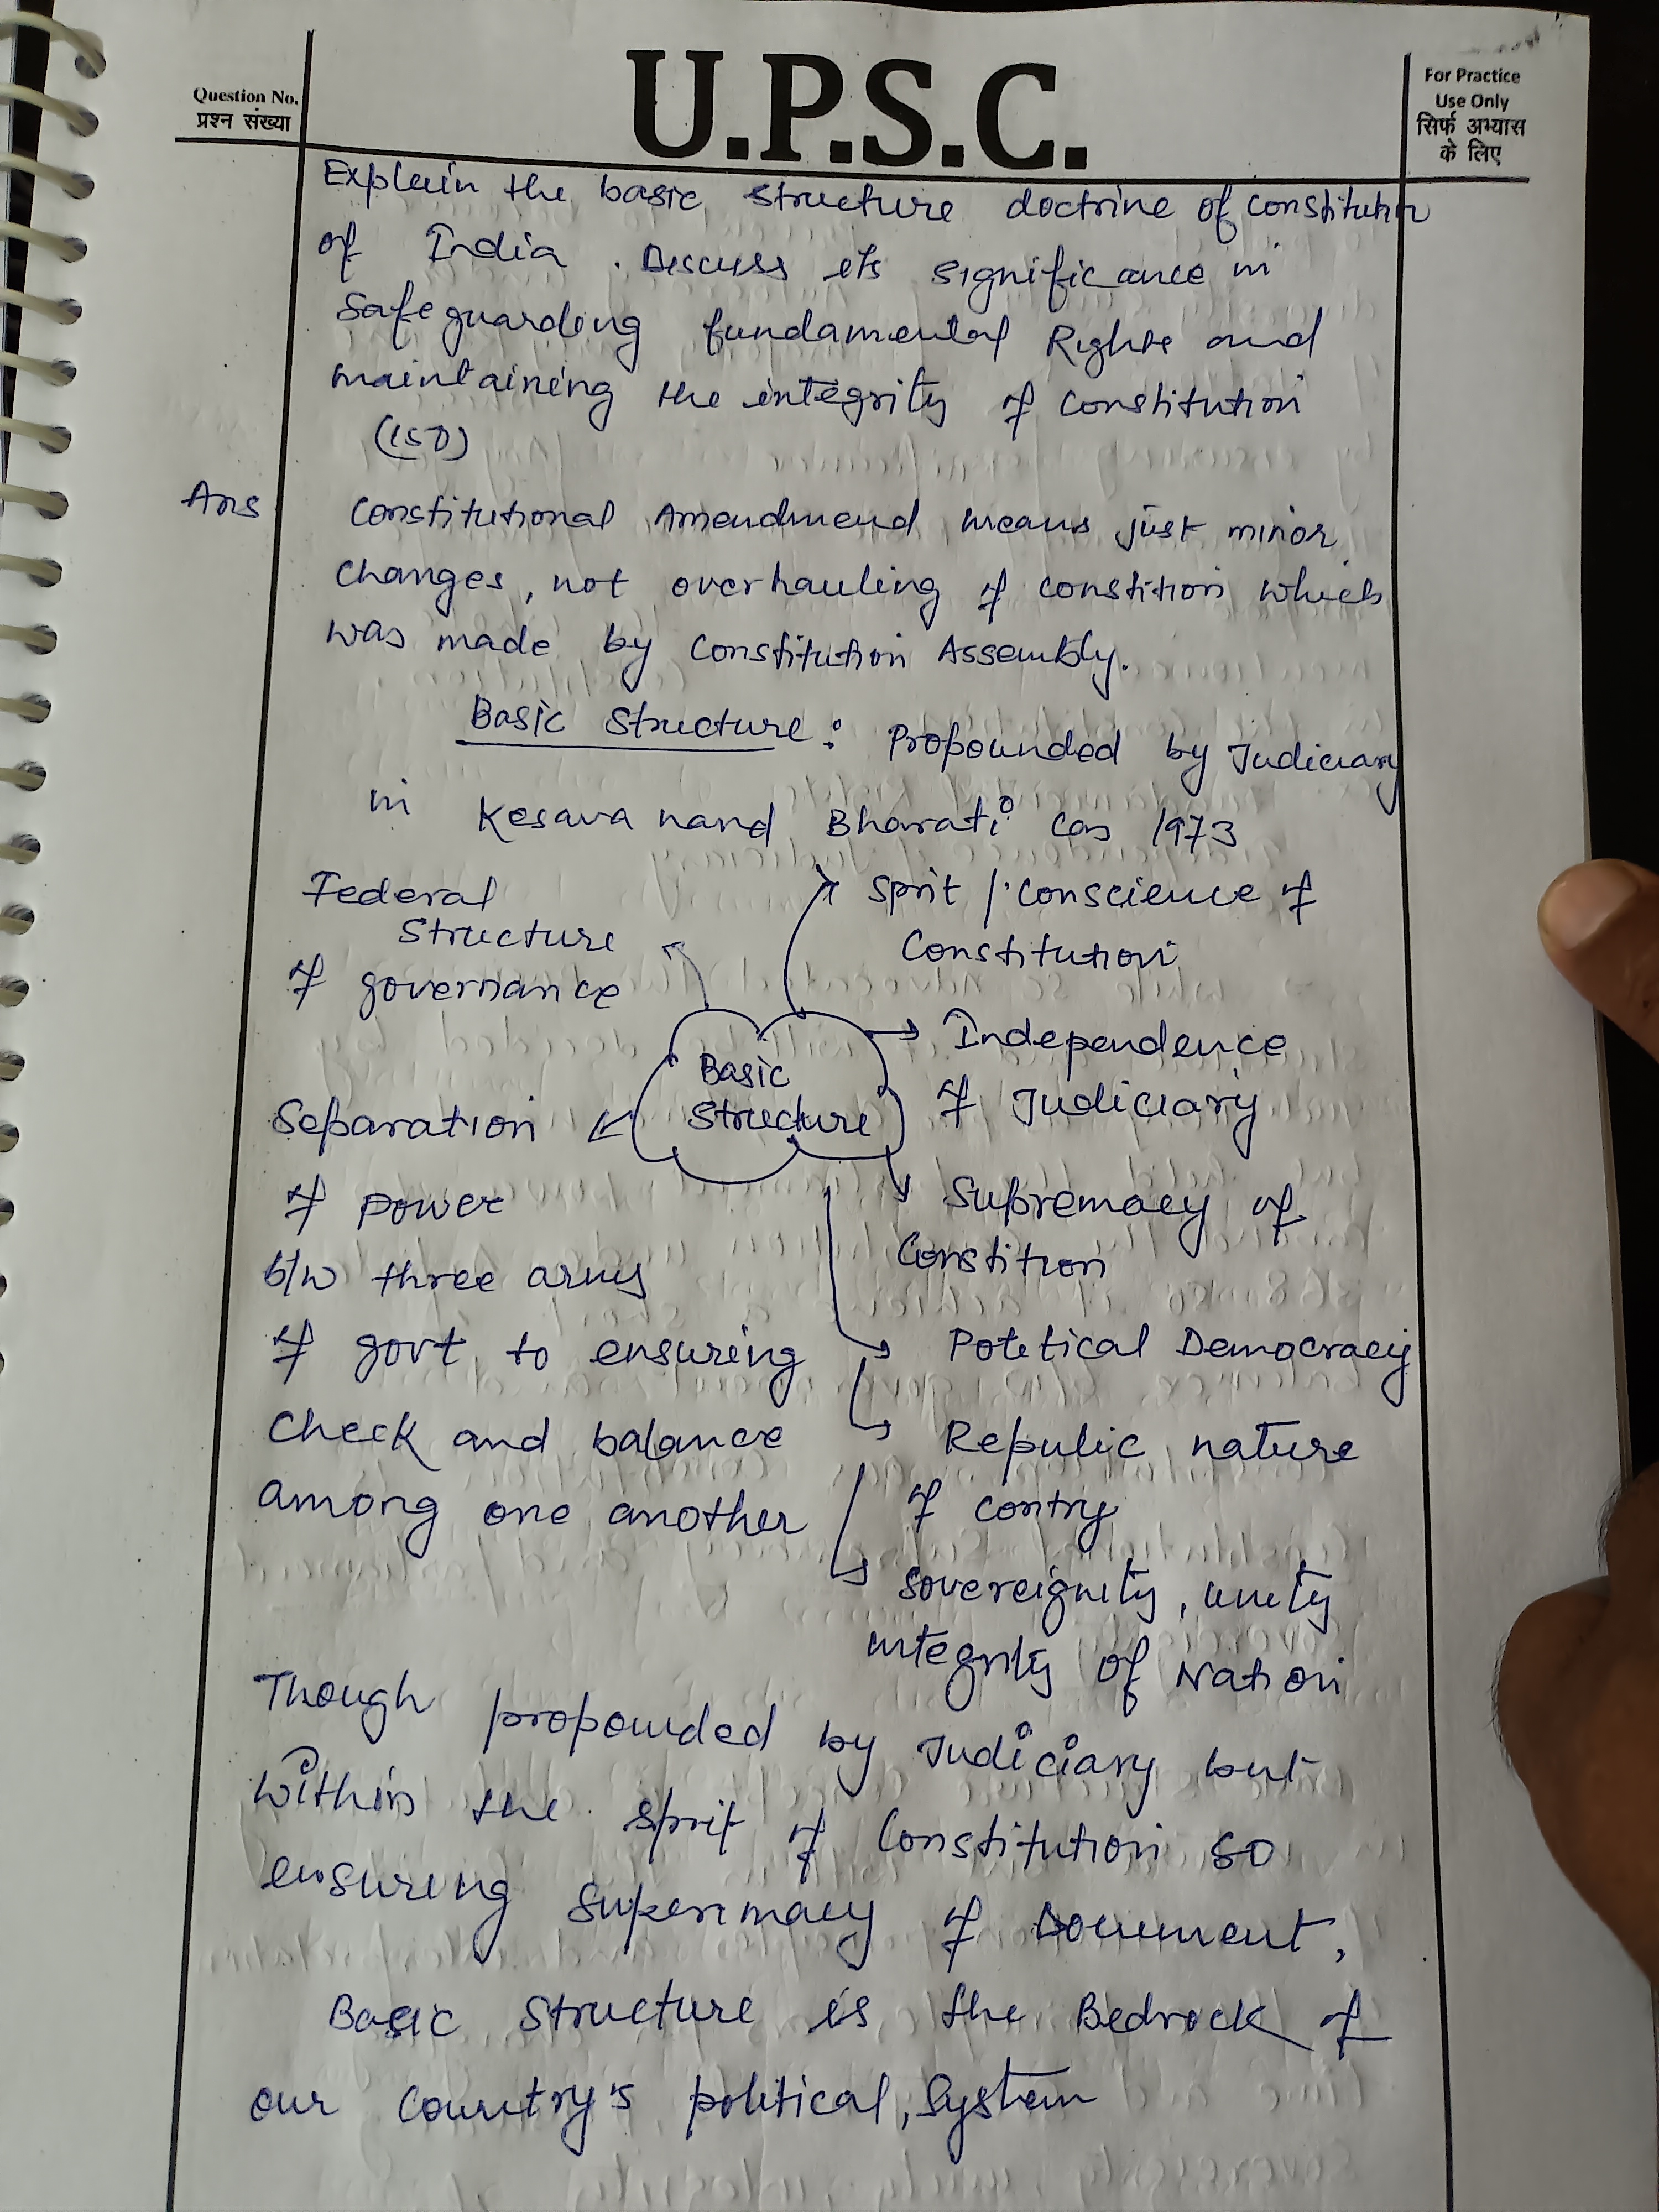 Question No.
प्रश्न संख्या
U.P.S.C.
For Practice
Use Only
सिर्फ अभ्यास
के लिए
Explain the basic structure doctrine of constitution
of India . Discuss its significance in
safeguarding fundamental Rights and
maintaining the integrity of constitution
(150)
Ans
Constitutional Amendmend means just minor
changes, not overhauling of constition which
was made by Constitution Assembly.
Basic Structure : Propounded by Judiciary
in Kesava nand Bharati Cas 1973
Federal
Structure
of governance
Sprit / Conscience of
Constitution
Basic
Structure
Independence
of Judiciary
Separation
of power
b/w three arms
of govt to ensuring
Check and balance
among one another
Supremacy of
Constition
Potetical Democracy
Repulic nature
of contry
sovereignity, unity
integrity of Nation
Though propounded by Judiciary but
within the sprit of Constitution so
ensuring Supermacy of Document,
Basic Structure is the Bedrock of
our Country's political, System